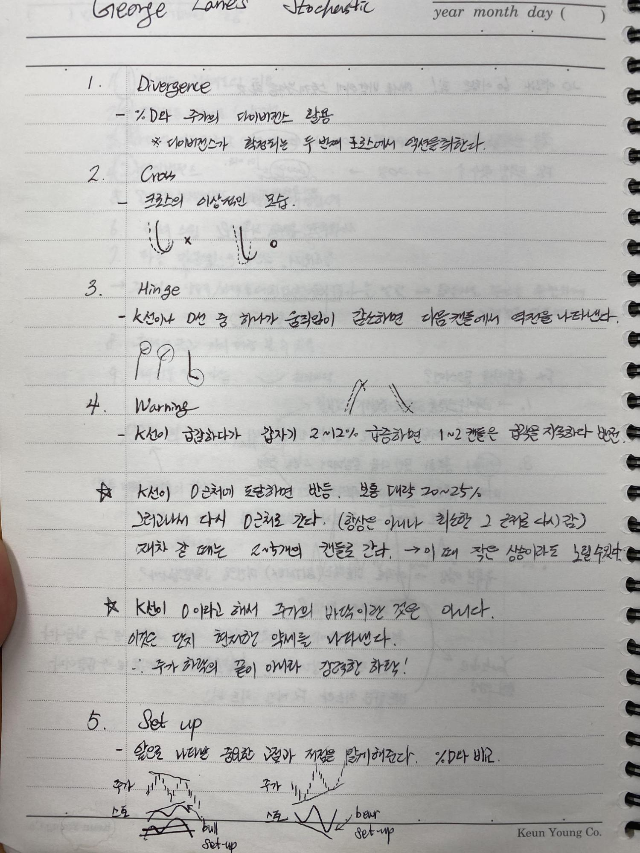 George Lane's Stochastic
year month day ( )
1. Divergence
- %D와 주가의 다이버전스 활용
※ 다이버전스가 확정되는 두번째 크로스에서 액션을 취한다.
2. Cross
- 크로스의 이상적인 모습.
x o
3. Hinge
- K선이나 D선 중 하나가 움직임이 감소하면 다음캔들에서 역전을 나타낸다.
4. Warning
- K선이 급감하다가 갑자기 2~12% 급증하면 1~2캔들은 지속하다 반전.
☆ K선이 0근처에 도달하면 반등. 보통 대략 20~25%
그리고나서 다시 0근처로 간다. (항상은 아니나 최소한 그 근처로 다시 감)
재차 갈 때는 2~5개의 캔들로 간다. → 이 때 작은 상승이라도 노릴 수 있다
☆ K선이 0이라고 해서 주가의 바닥이란 것은 아니다.
이것은 단지 현저한 약세를 나타낸다.
∴ 주가 하락의 끝이 아니라 강력한 하락!
5. Set up
- 앞으로 나타날 중요한 고점과 저점을 알게해준다. %D와 비교.
주가 주가
스토 bull set-up 스토 bear set-up
Keun Young Co.